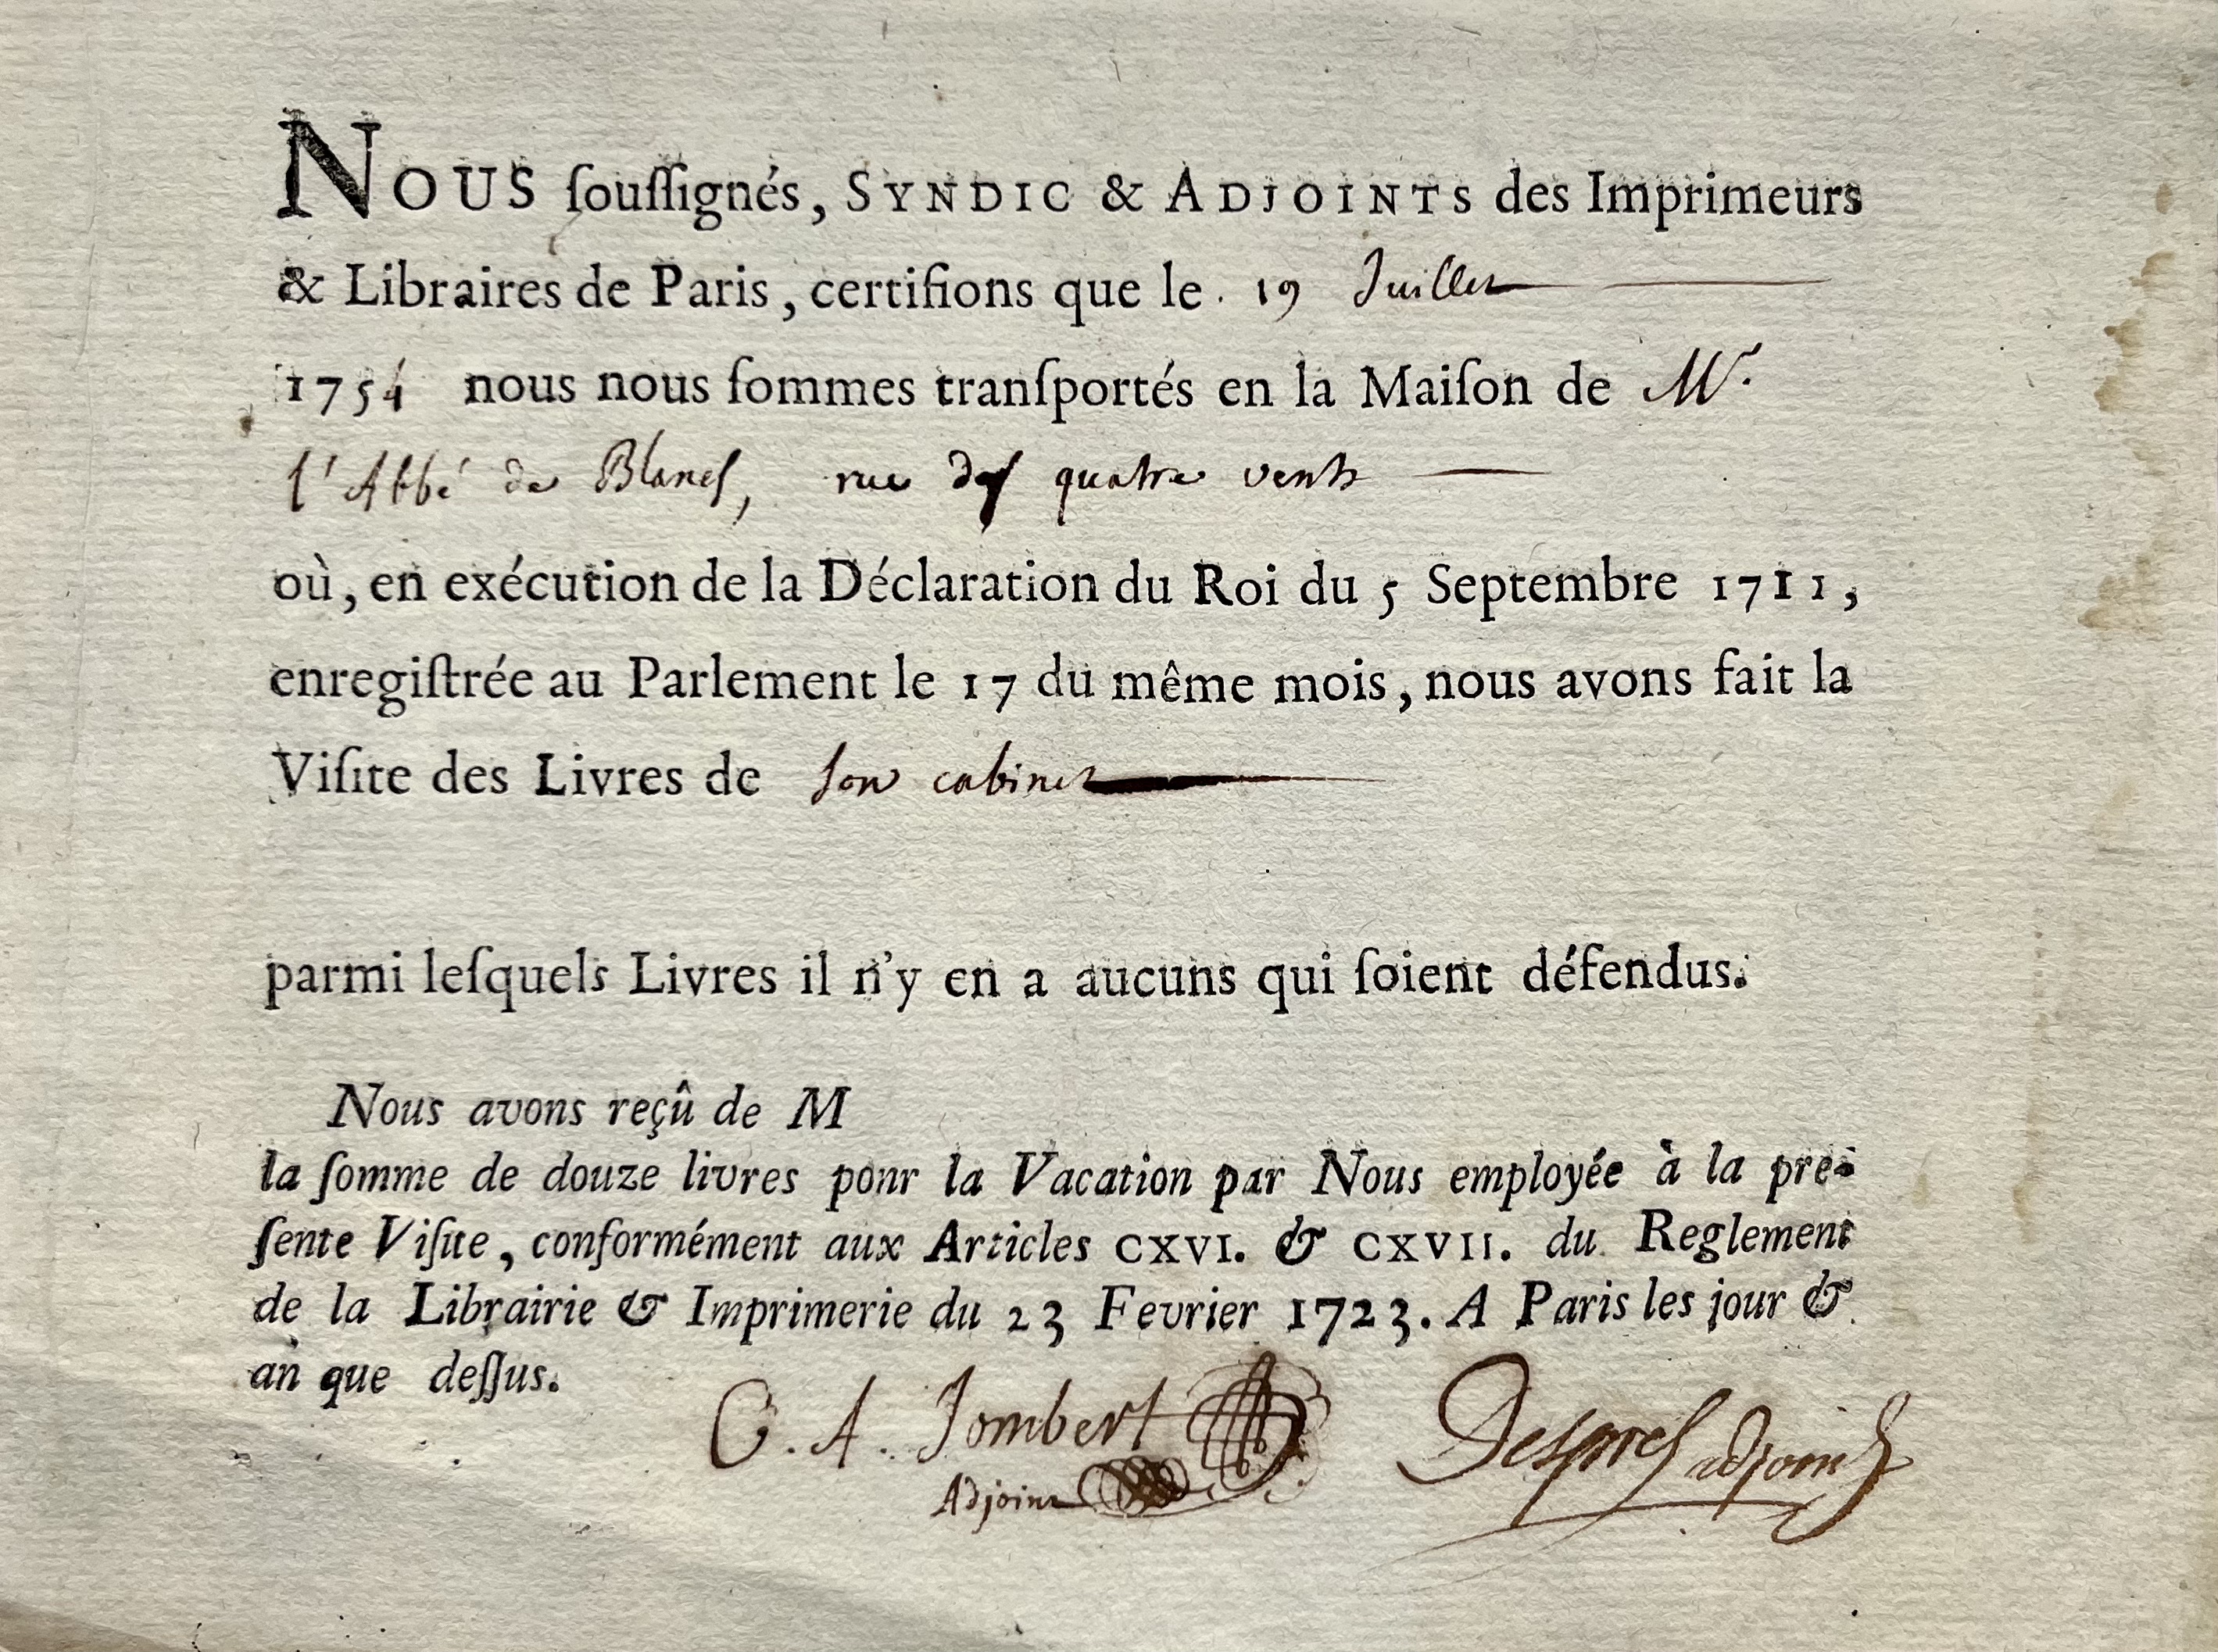 NOUS ſouſſignés, SYNDIC & ADJOINTS des Imprimeurs
& Libraires de Paris, certifions que le 19 Juillet
1754 nous nous ſommes tranſportés en la Maiſon de Mr.
l'Abbé de Blanes, rue des quatre vents
où, en exécution de la Déclaration du Roi du 5 Septembre 1711,
enregiſtrée au Parlement le 17 du même mois, nous avons fait la
Viſite des Livres de son cabinet
parmi leſquels Livres il n'y en a aucuns qui ſoient défendus.
Nous avons reçû de M
la ſomme de douze livres ponr la Vacation par Nous employée à la pre-
ſente Viſite, conformément aux Articles CXVI. & CXVII. du Reglement
de la Librairie & Imprimerie du 23 Fevrier 1723. A Paris les jour &
an que deſſus.
C. A. Jombert Despres adjoint
Adjoint